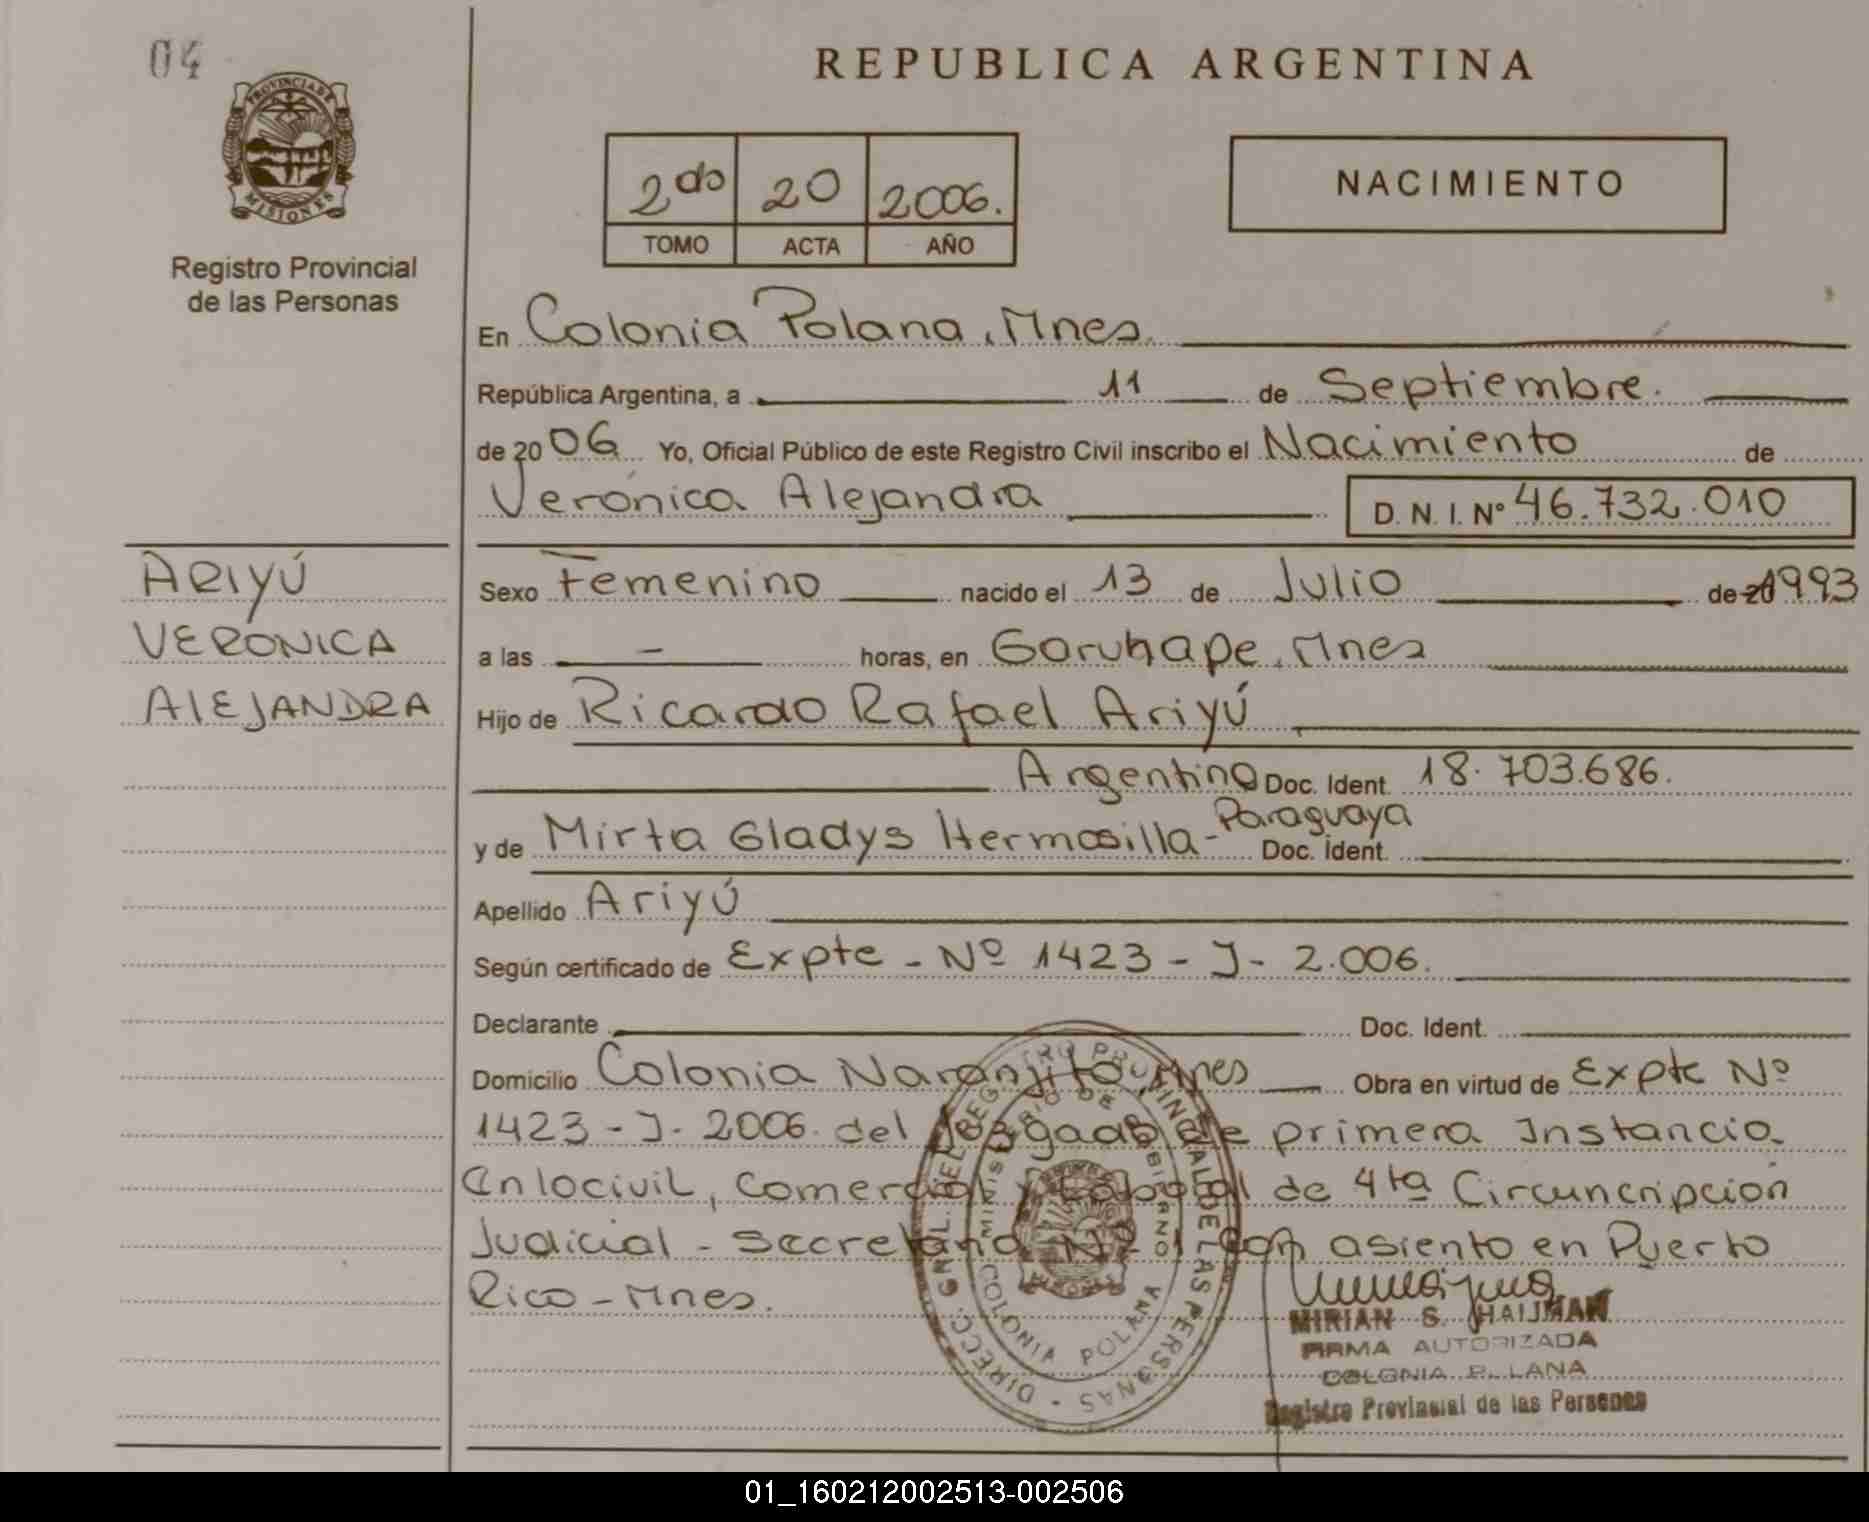 04
REPUBLICA ARGENTINA
PROVINCIA DE MISIONES
Registro Provincial
de las Personas
2do 20 2006.
TOMO ACTA AÑO
NACIMIENTO
En Colonia Polana, Mnes.
República Argentina, a 11 de Septiembre.
de 2006 Yo, Oficial Público de este Registro Civil inscribo el Nacimiento de
Verónica Alejandra D. N. I. Nº 46.732.010
ARIYÚ
VERONICA
ALEJANDRA
Sexo Femenino nacido el 13 de Julio de 20 1993
a las - horas, en Garuhape, Mnes
Hijo de Ricardo Rafael Ariyú
Argentino Doc. Ident. 18.703.686.
y de Mirta Gladys Hermosilla - Paraguaya Doc. Ident.
Apellido Ariyú
Según certificado de Expte - Nº 1423 - J - 2.006.
Declarante Doc. Ident.
Domicilio Colonia Naranjito, Mnes Obra en virtud de Expte Nº
1423 - J - 2006. del Jusgado de primera Instancia
En locivil, Comercial y Laboral de 4ta Circuncripcion
Judicial - Secretaria Nº 1 con asiento en Puerto
Rico - Mnes.
DIRECC. GNAL. DEL REGISTRO PROVINCIAL DE LAS PERSONAS
MINISTERIO DE GOBIERNO
COLONIA POLANA
MIRIAN S. HAIJMAN
FIRMA AUTORIZADA
COLONIA POLANA
Registro Provincial de las Personas
01_160212002513-002506